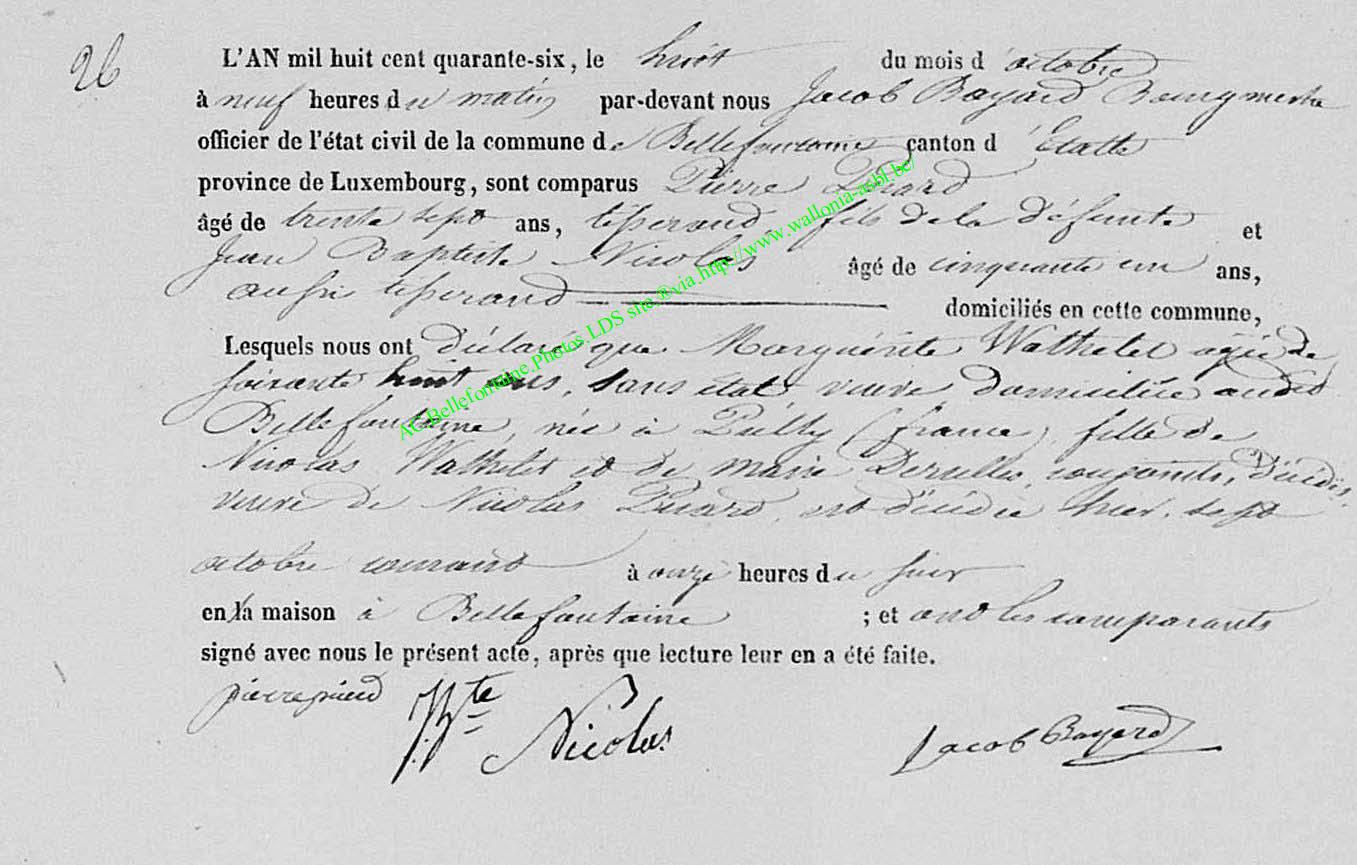 26
L'AN mil huit cent quarante-six, le huit du mois d'octobre
à neuf heures du matin par-devant nous Jacob Bayard Bourgmestre
officier de l'état civil de la commune de Bellefontaine canton d'Etalle
province de Luxembourg, sont comparus Pierre
âgé de trente sept ans, tisserand, fils de la défunte et
Jean Baptiste Nicolas âgé de cinquante un ans,
aussi tisserand domiciliés en cette commune,
Lesquels nous ont déclaré que Marguerite Wathelet agée de
soixante huit ans, sans état veuve domiciliée audit
Bellefontaine, née à (france), fille de
Nicolas Wathelet et de Marie conjoints, décédés,
veuve de Nicolas est décédée hier, sept
octobre courant à onze heures du soir
en la maison à Bellefontaine ; et ont les comparants
signé avec nous le présent acte, après que lecture leur en a été faite.
pierre JBte Nicolas Jacob Bayard
AC.Bellefontaine.Photos.LDS site ®via.http://www.wallonia-asbl.be/